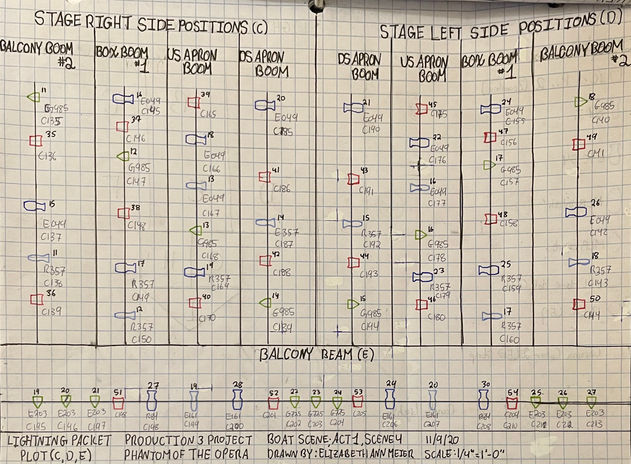 STAGE RIGHT SIDE POSITIONS (C)
STAGE LEFT SIDE POSITIONS (D)
BALCONY BOOM #2
BOX BOOM #1
US APRON BOOM
DS APRON BOOM
DS APRON BOOM
US APRON BOOM
BOX BOOM #1
BALCONY BOOM #2
11
G985
C135
35
C136
15
E049
C137
11
R357
36
C139
39
C146
12
G985
C147
38
C148
17
R357
C149
12
R357
C150
39
C165
18
E049
C166
13
E049
C167
13
G985
C168
19
R357
C169
40
C170
20
E049
41
C186
14
E357
C187
42
C188
14
G985
C189
21
E049
C190
43
C191
15
R357
C192
44
C193
15
G985
45
C175
22
E049
C176
16
E049
C177
16
G985
C178
23
R357
C179
46
C180
24
E049
C155
47
C156
17
G985
C157
48
C158
25
R357
C159
17
R357
C160
18
G985
C140
49
C141
26
E049
C142
18
R357
C143
50
C144
BALCONY BEAM (E)
19 20 21 51 27 19 28 52 22 23 24 53 29 20 30 54 25 26 27
LIGHTNING PACKET PRODUCTION 3 PROJECT BOAT SCENE: ACT 1, SCENE 4 11/9/20
PLOT (C, D, E) PHANTOM OF THE OPERA DRAWN BY: ELIZABETH ANN MEIER SCALE: 1/4"=1'-0"